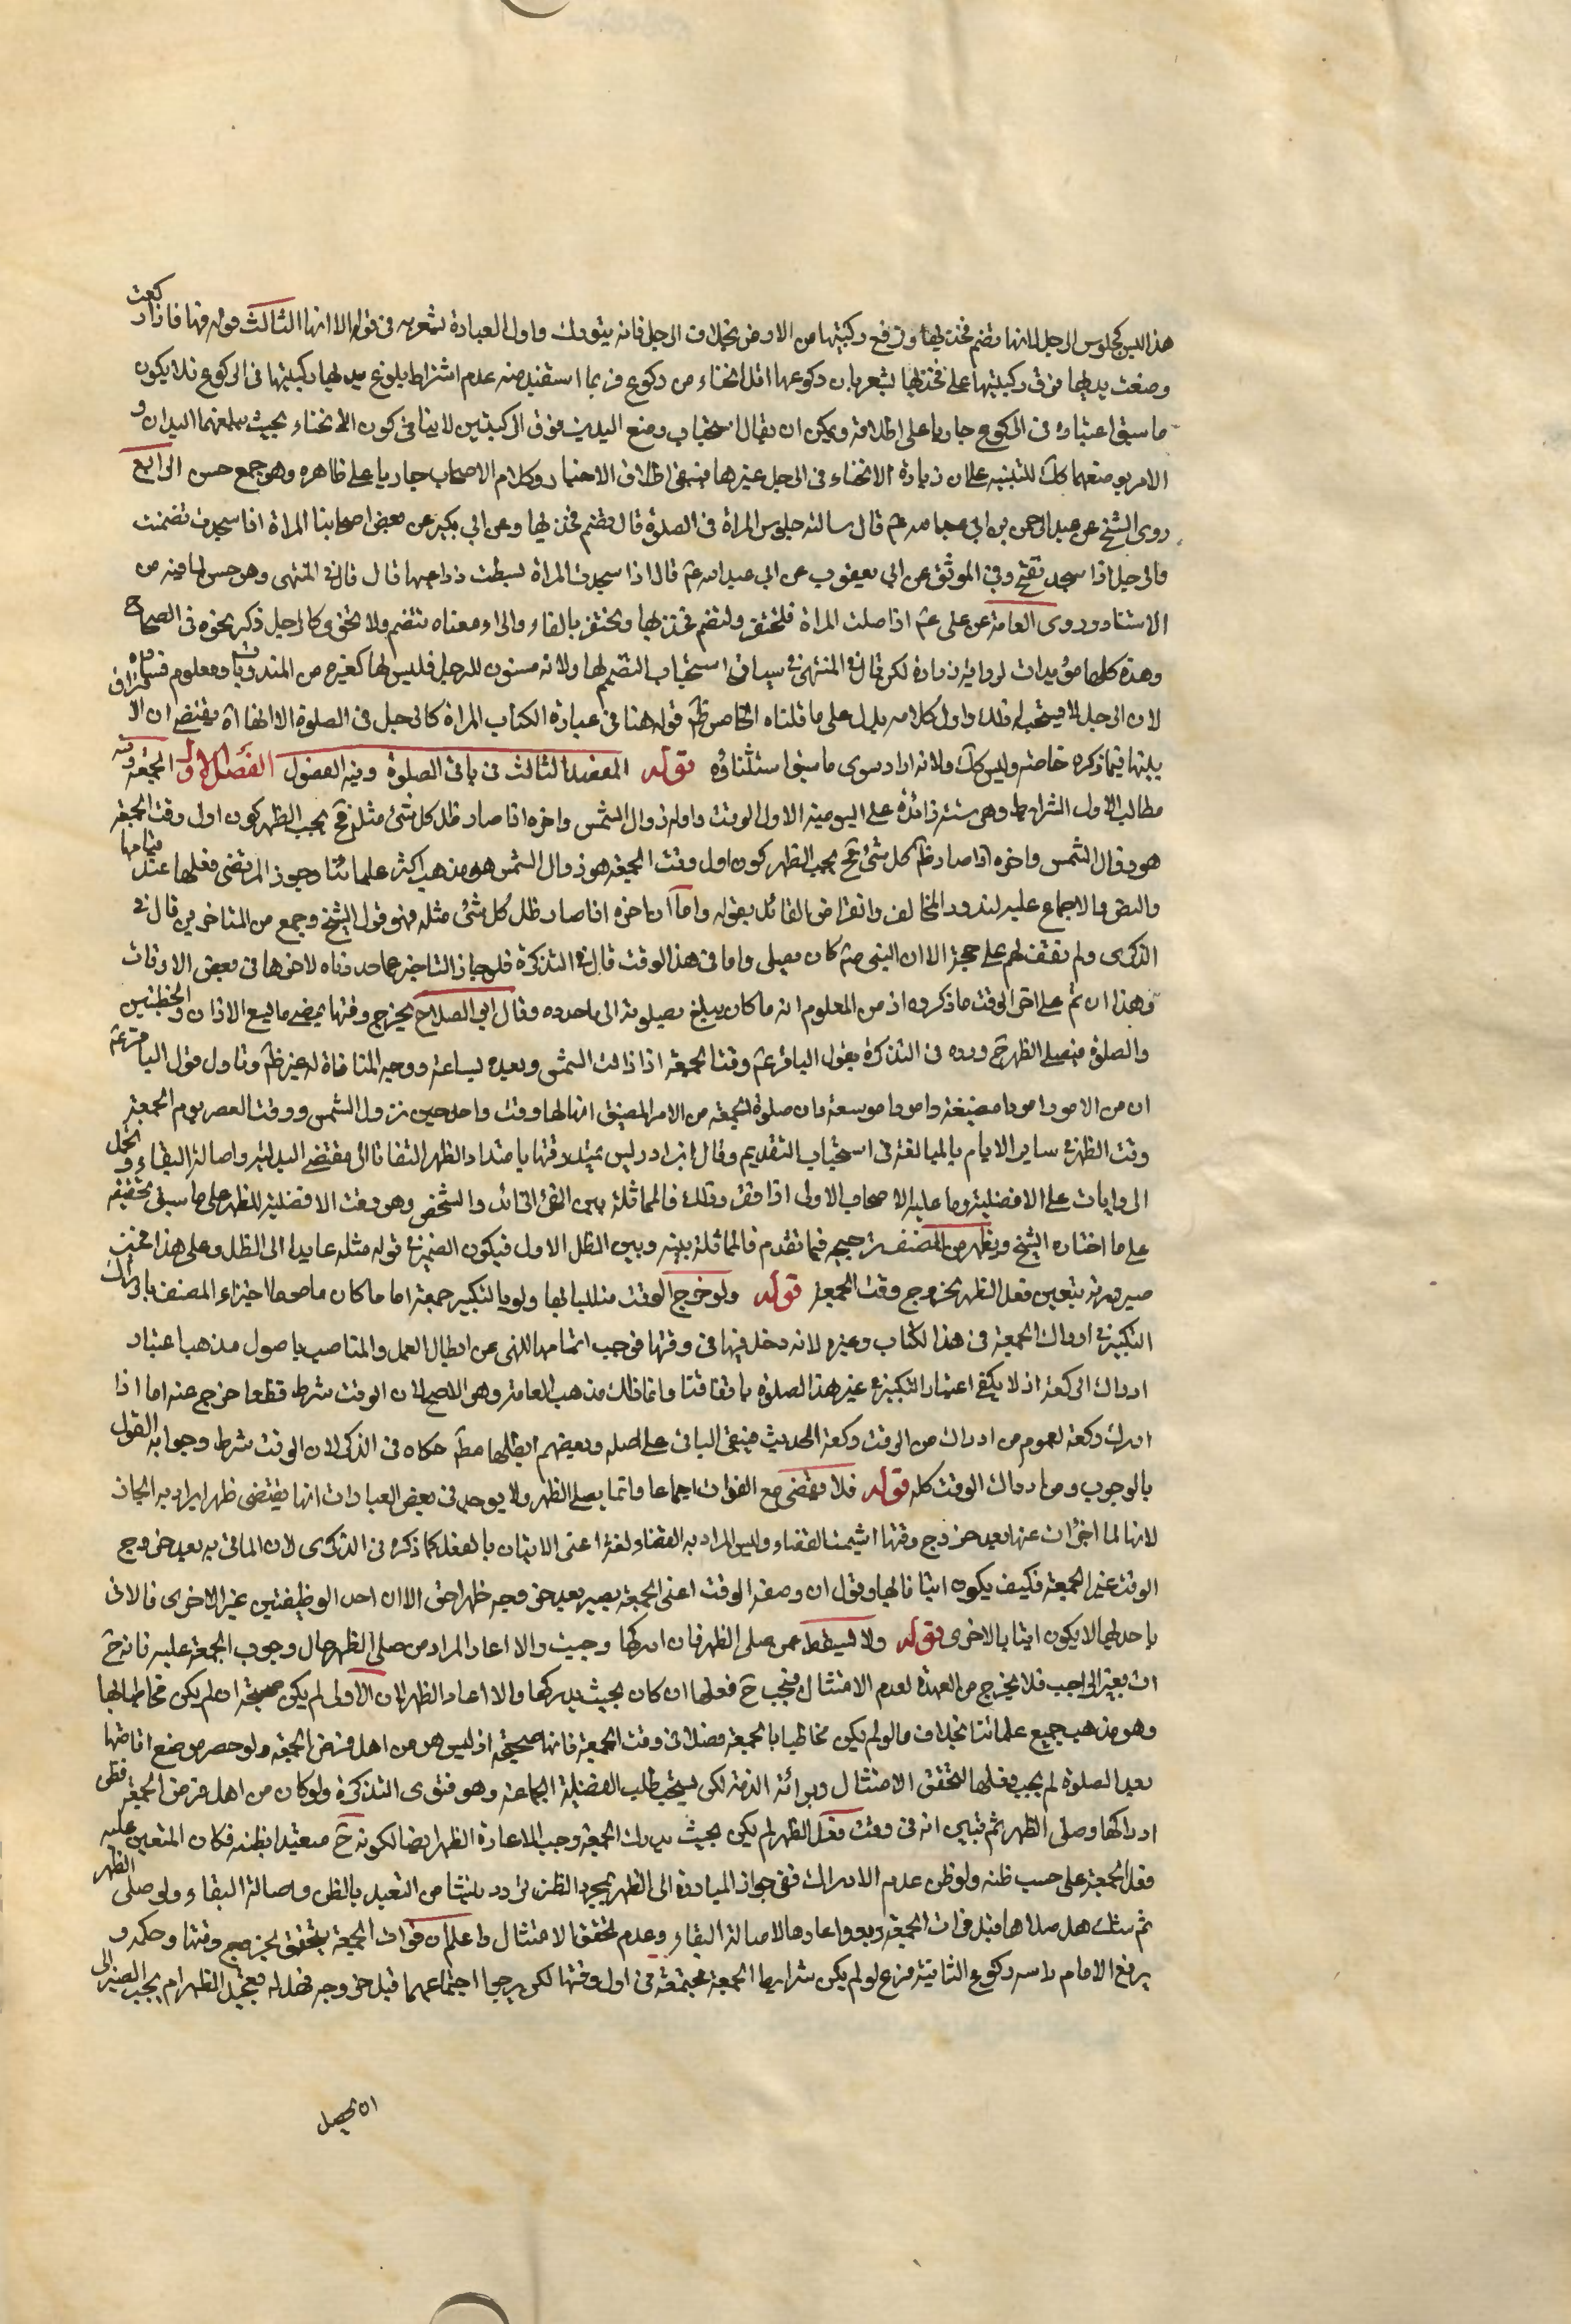 هذا ليس كجلوس الرجل لانها تضم فخذيها وترفع ركبتيها من الارض بخلاف الرجل فانه يتورك واول العبارة يشعر به في قوله الا انها الثالث قوله فيها فاذا ركعت
وضعت يديها فوق ركبتيها على فخذيها يشعر بان ركوعها اقل انحناء من ركوع فربما استفيد منه عدم اشتراط بلوغ يديها ركبتيها في الركوع فلا يكون
ما سبق اعتباره في الركوع جاريا على اطلاقه ويمكن ان يقال استحباب وضع اليدين فوق الركبتين لا ينافي كون الانحناء بحيث يبلغهما اليدان و
الامر بوضعهما كك للتنبيه على ان زيادة الانحناء في الرجل غيرها فيبقى اطلاق الاخبار وكلام الاصحاب جاريا على ظاهره وهو جمع حسن الرابع
روى الشيخ عن عبد الرحمن بن ابي عبد الله عم قال سالته جلوس المراة في الصلوة قال تضم فخذيها وعن ابي بكير عن بعض اصحابنا المراة اذا سجدت تضمنت
والرجل اذا سجد تفتح وفي الموثق عن ابن ابي يعفور عن ابي عبد الله عم قال اذا سجدت المراة بسطت ذراعيها قال قال في المنتهى وهو حسن لما فيه من
الاستتار وروى العامة عن علي عم اذا صلت المراة فلتحتفز ولتضم فخذيها وتحتفز بالفاء والزاء ومعناه تتضم ولا تخوى كالرجل ذكر نحوه في الصحاح
وهذه كلها مؤيدات لرواية زرارة لكن قال في المنتهى في سياق استحباب التضمم لها ولانه مسنون للرجل فليس لها كغيره من المندوبات ومعلوم فساده
لان الرجل لا يستحب له ذلك واول كلامه يدل على ما قلناه الخامس ظهر قوله هنا في عبارة الكتاب المراة كالرجل في الصلوة الا انها اه يقتضي ان الافتراق
بينها فيما ذكره خاصة وليس كك ولانه اراد سوى ما سبق استثناؤه قوله المقصد الثالث في باقي الصلوة وفيه الفصول الفصل الاول الجمعة وفيه
مطالب الاول الشرايط وهي ستة زائدة على اليومية الاول الوقت واوله زوال الشمس واخره اذا صار ظل كل شئ مثله فح يجب الظهر كون اول وقت الجمعة
هو زوال الشمس واخره اذا صار ظل كل شئ فح يجب الظهر كون اول وقت الجمعة هو زوال الشمس هو مذهب اكثر علمائنا وجوز المرتضى فعلها عند قيامها
والنص والاجماع عليه لندور المخالف وانقراض القائل بقوله واما ان اخره اذا صار ظل كل شئ مثله فهو قول الشيخ وجمع من المتاخرين قال في
الذكرى ولم نقف لهم على حجة الا ان النبي صم كان يصلي واما في هذا الوقت قال في التذكرة فلو جاز التاخير عما حددناه لاخرها في بعض الاوقات
وهذا ان تم على اخر الوقت ما ذكروه اذ من المعلوم انه ما كان يبلغ بصلوته الى ما حددوه وقال ابو الصلاح يخرج وقتها بمضي ما يسع الاذان والخطبتين
والصلوة فيصلي الظهر ح ورده في التذكرة بقول الباقر عم وقت الجمعة اذا زالت الشمس وبعده بساعة ووجه المنافاة له غير ظهر وتاول قول الباقر عم
ان من الامور امورا مضيقة وامورا موسعة وان صلوة الجمعة من الامر المضيق انما لها وقت واحد حين تزول الشمس ووقت العصر يوم الجمعة
وقت الظهر في ساير الايام بالمبالغة في استحباب التقديم وقال ابن ادريس يمتد وقتها بامتداد الظهر التفاتا الى مقتضى البدلية واصالة البقاء وحمل
الروايات على الافضلية وما عليه الاصحاب الاولى اذا تقرر ذلك فالمماثلة بين الفئ الزائد والشخص وهو وقت الافضلية للظهر على ما سبق تحقيقه
على ما اختاره الشيخ ويظهر من المصنف ترجيحه فيما تقدم فالمماثلة بينه وبين الظل الاول فيكون الضمير في قوله مثله عايدا الى الظل وعلى هذا فحين
صيرورته يتعين فعل الظهر بخروج وقت الجمعة قوله ولو خرج الوقت متلبسا بها ولو بالتكبير جمعة اما ما كان ماموما اجتزاء المصنف بادراك
التكبير في ادراك الجمعة في هذا الكتاب وغيره لانه دخل فيها في وقتها فوجب اتمامها للنهي عن ابطال العمل والمناسب باصول مذهبنا اعتبار
ادراك الركعة اذ لا يكفي اعتبار التكبير في غير هذه الصلوة باتفاقنا وانما ذلك مذهب العامة وهو الاصح لان الوقت شرط قطعا خرج عنه اما اذا
ادرك ركعة لعموم من ادرك من الوقت ركعة الحديث فيبقى الباقي على اصله وبعضهم ابطلها مطلقا حكاه في الذكرى لان الوقت شرط وجوابه القول
بالوجوب ومن ادراك الوقت كله قوله فلا تقضى مع الفوات اجماعا وانما يصلي الظهر ولا يوجد في بعض العبارات انها يقتضى ظهرا يراد به المجاز
لانها لما اجزأت عنها بعد خروج وقتها اشبهت القضاء وليس المراد به القضاء لغة اعني الاتيان بالفعل كما ذكره في الذكرى لان الماتي به بعد خروج
الوقت غير الجمعة فكيف يكون اتيانا لها وقول ان وصف الوقت اعني الجمعة يصير بعد خروجه ظهرا حق الا ان احد الوظيفتين غير الاخرى فالاتي
باحديهما لا يكون اتيا بالاخرى قوله ولا تسقط عمن صلى الظهر فان ادركها وجبت والا اعاد المراد من صلى الظهر حال وجوب الجمعة عليه فانه ح
ات بغير الواجب فلا يخرج من العهدة لعدم الامتثال فيجب ح فعلها ان كان بحيث يدركها والا اعاد الظهر لان الاولى لم يكن صحيحة ان لم يكن مخاطبا بها
وهو مذهب جميع علمائنا بخلاف ما لو لم يكن مخاطبا بالجمعة فصلاة في وقت الجمعة فانها صحيحة اذ ليس هو من اهل فرض الجمعة ولو حضر موضع اقامتها
بعد الصلوة لم يجب فعلها لتحقق الامتثال وبرائة الذمة لكن يستحب طلب الفضيلة الجماعة وهو فتوى التذكرة ولو كان من اهل فرض الجمعة فظن
ادراكها وصلى الظهر ثم تبين انه في وقت فعل الظهر لم يكن بحيث يدرك الجمعة وجب الاعادة الظهر ايضا لكونه ح متعبدا بظنه فكان المتعين عليه
فعل الجمعة على حسب ظنه ولو ظن عدم الادراك ففي جواز المبادرة الى الظهر بمجرد الظن تردد ينشا من التعبد بالظن واصالة البقاء ولو صلى الظهر
ثم شك هل صلاها قبل فوات الجمعة وبعدها اعادها لاصالة البقاء وعدم تحقق الامتثال واعلم ان فوات الجمعة يتحقق بخروج وقتها وحكمه و
يرفع الامام راسه ركوع الثانية فرع لو لم يكن شرايط الجمعة مجتمعة في اول وقتها لكن يرجى اجتماعهما قبل خروجه فهل له تعجيل الظهر ام يجب الصبر الى
ان يحصل